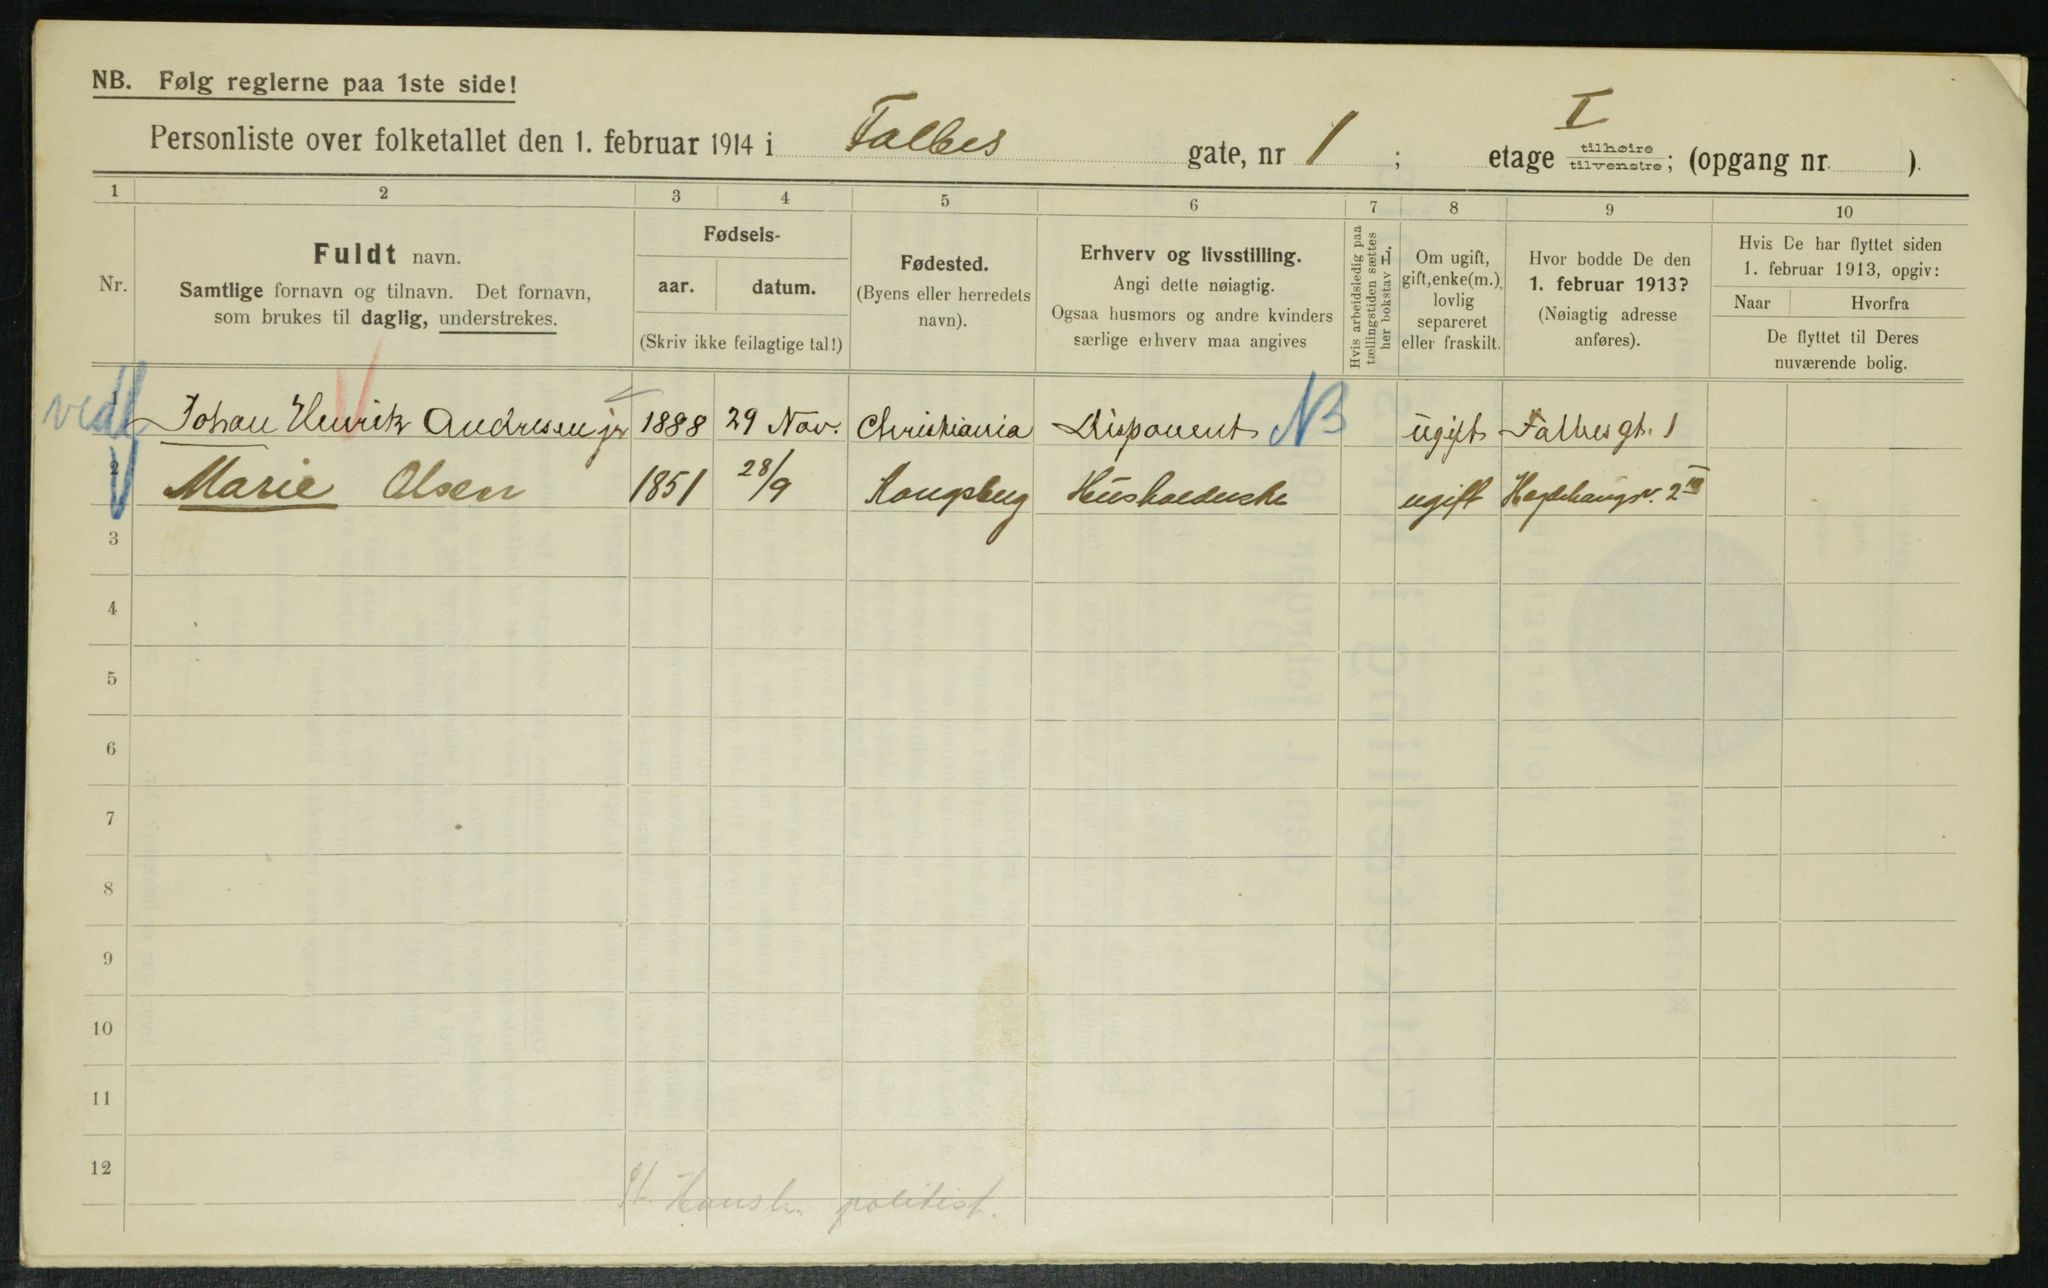 NB. Følg reglerne paa 1ste side!
Personliste over folketallet den 1. februar 1914 i Falbes gate, nr 1 ; I etage tilhøire tilvenstre; (opgang nr. ).
1 2 3 4 5 6 7 8 9 10
Nr.
Fuldt navn.
Samtlige fornavn og tilnavn. Det fornavn,
som brukes til daglig, understrekes.
Fødsels-
aar. datum.
(Skriv ikke feilagtige tal!)
Fødested.
(Byens eller herredets
navn).
Erhverv og livsstilling.
Angi dette nøiagtig.
Ogsaa husmors og andre kvinders
særlige erhverv maa angives
Hvis arbeidsledig paa
tællingstiden sættes
her bokstav L.
Om ugift,
gift, enke(m.),
lovlig
separeret
eller fraskilt.
Hvor bodde De den
1. februar 1913?
(Nøiagtig adresse
anføres).
Hvis De har flyttet siden
1. februar 1913, opgiv:
Naar Hvorfra
De flyttet til Deres
nuværende bolig.
1 Johan Henrik Andresen jr 1888 29 Nov. Christiania Disponent NB ugift Falbesgt. 1
2 Marie Olsen 1851 28/9 Kongsberg Husholderske ugift Hegdehaugsv. 2
3
4
5
6
7
8
9
10
11
12
St. Hansh. politist.